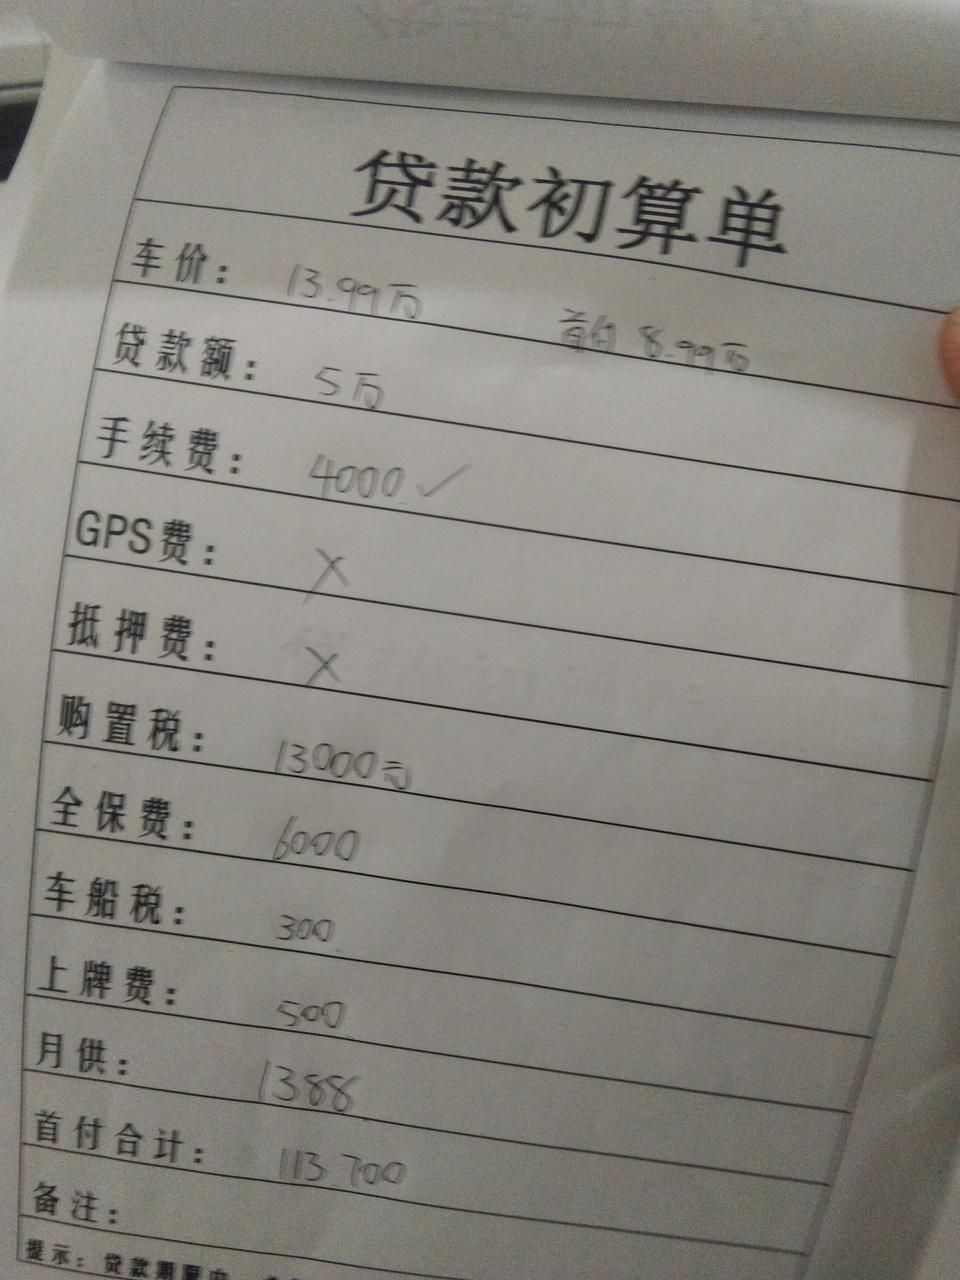 贷款初算单
车价： 13.99万 首付 8.99万
贷款额： 5万
手续费： 4000 ✓
GPS费： X
抵押费： X
购置税： 13000元
全保费： 6000
车船税： 300
上牌费： 500
月供： 1388
首付合计： 113.700
备注：
提示：贷款期限内